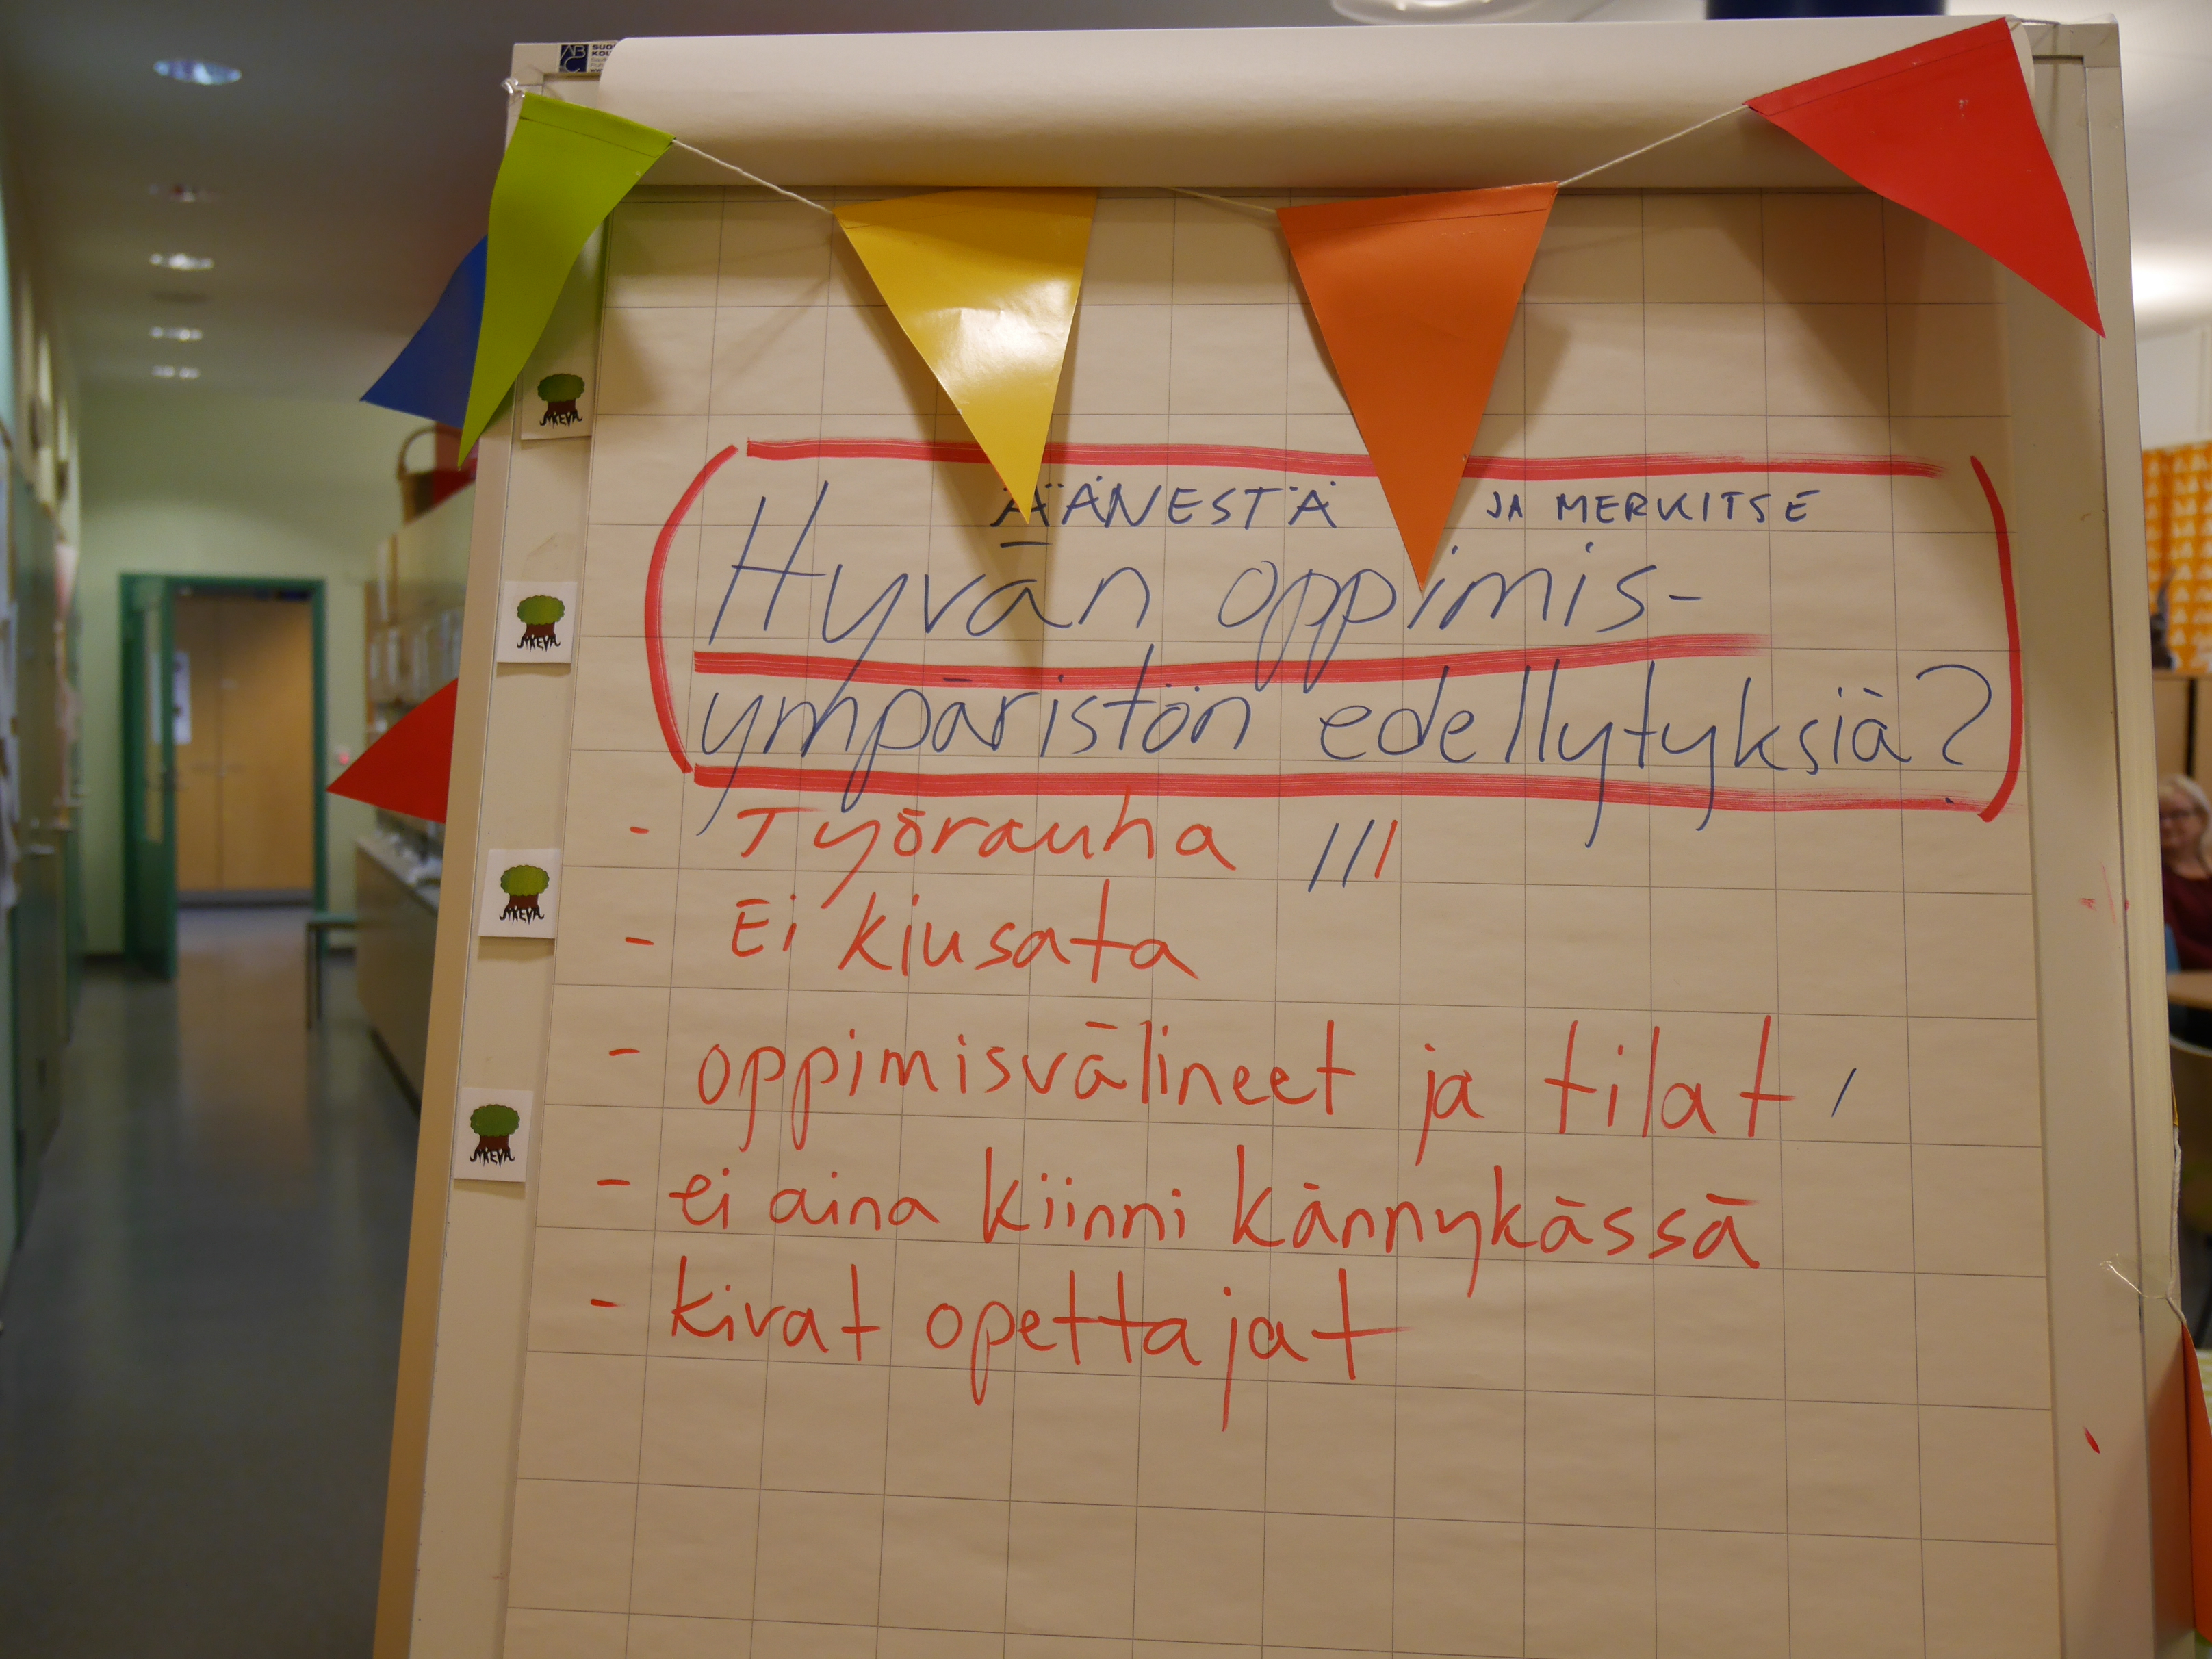 ABC SUO
KOU
ÄÄNESTÄ JA MERKITSE
Hyvän oppimis-
ympäristön edellytyksiä?
- Työrauha ///
- Ei kiusata
- oppimisvälineet ja tilat /
- ei aina kiinni kännykässä
- kivat opettajat
MKEVA
MKEVA
MKEVA
MKEVA